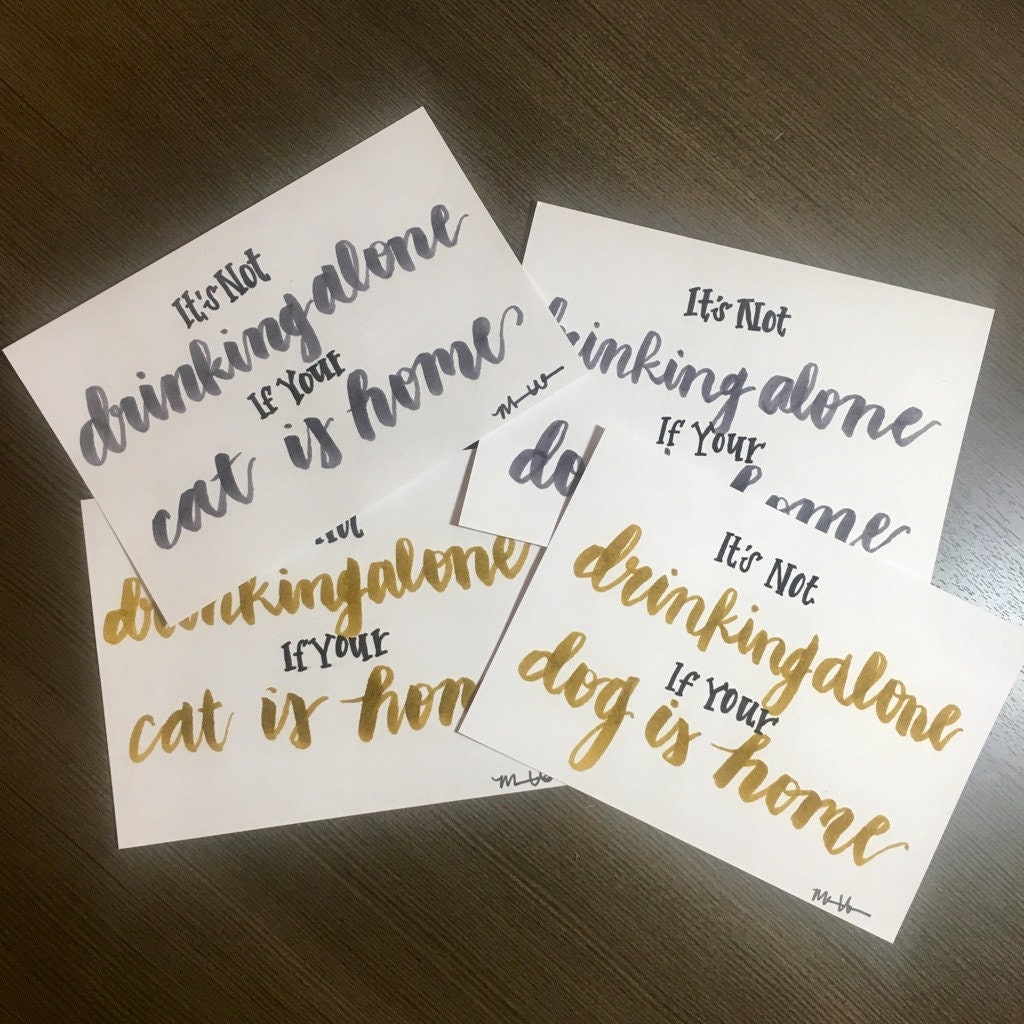 It's Not
drinking alone
If Your
cat is home
It's Not
drinking alone
If Your
do
home
Not
drinking alone
If Your
cat is hom
It's Not
drinking alone
If Your
dog is home